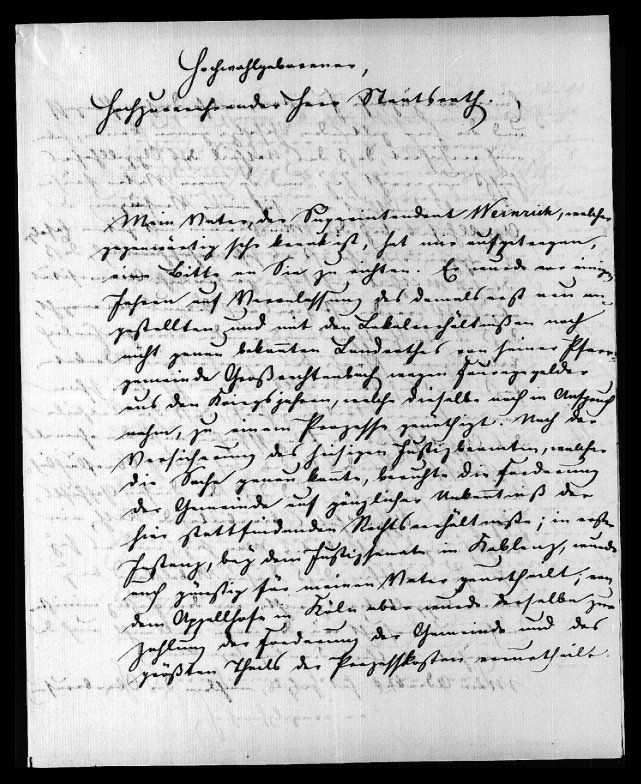 Hochwohlgeborener,
Hochzuverehrender Herr Staatsrath.
Mein Vater, der Superintendent Wernrick, welcher
gegenwärtig sehr krank ist, hat mir aufgetragen,
eine Bitte an Sie zu richten. Er wurde vor einigen
Jahren auf Veranlassung des damals erst neu an-
gestellten und mit den Lokalverhältnißen noch
nicht genau bekannten Landrathes von seiner Pfarr-
gemeinde Großrechtenbach wegen Fouragegelder
aus den Kriegsjahren, welche dieselbe noch in Anspruch
nahm, zu einem Prozesse genöthigt. Nach der
Versicherung des hiesigen Justizbeamten, welcher
die Sache genau kannte, beruhte die Forderung
der Gemeinde auf gänzlicher Unkenntniß der
hier stattfindenden Rechtsverhältniße; in erster
Instanz, bey dem Justizsenate in Koblenz, wurde
auch günstig für meinen Vater geurtheilt, von
dem Appellhofe in Köln aber wurde derselbe zur
Zahlung der Forderung der Gemeinde und des
größten Theils der Prozeßkosten verurtheilt.